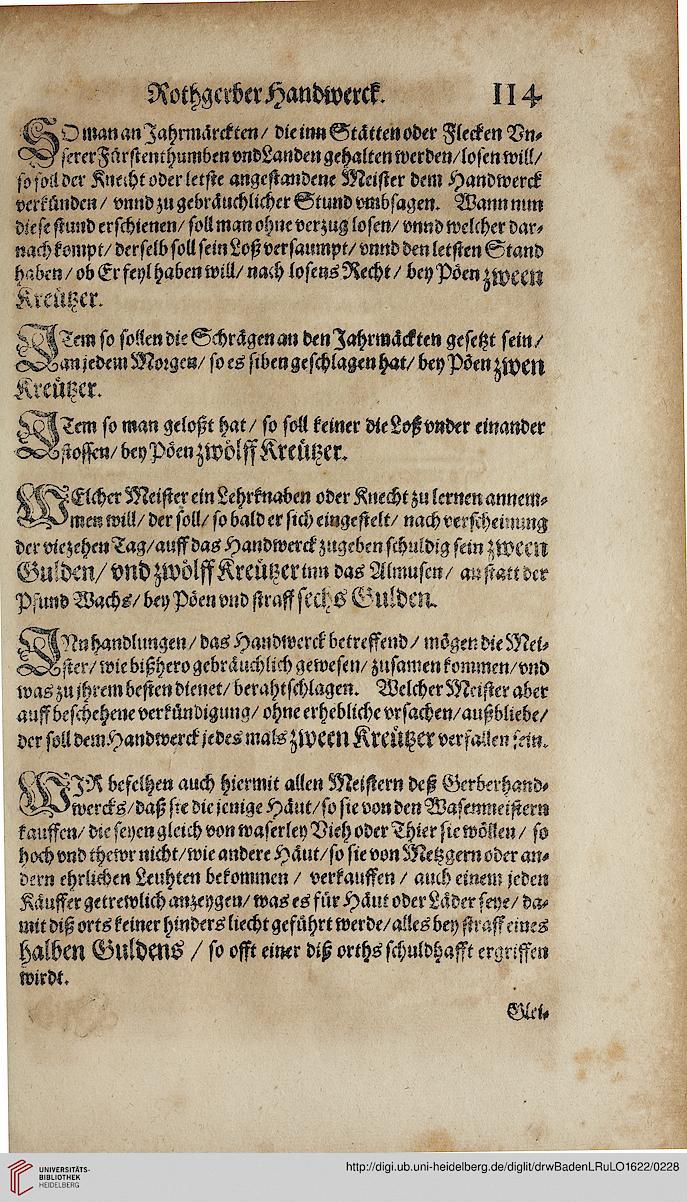 Rothgerber Handwerck. 114
SO man an Jahrmärckten / die inn Stätten oder Flecken Vn⸗
serer Fürstenthumben vnd Landen gehalten werden / losen will /
so soll der Knecht oder letste angestandene Meister dem Handwerck
verkünden / vnnd zu gebräuchlicher Stund vmbsagen. Wann nun
diese stund erschienen / soll man ohne verzug losen / vnnd welcher dar⸗
nach kompt / derselb soll sein Loß versaumpt / vnnd den letsten Stand
haben / ob Er feyl haben will / nach losens Recht / bey Pöen zween
Kreützer.
ITem so sollen die Schrägen an den Jahrmäckten gesetzt sein /
an jedem Morgen / so es siben geschlagen hat / bey Pöen zwen
Kreützer.
ITem so man geloßt hat / so soll keiner die Loß vnder einander
stossen / bey Pöen zwölff Kreützer.
WElcher Meister ein Lehrknaben oder Knecht zu lernen annem⸗
men will / der soll / so bald er sich eingestelt / nach verscheinung
der viezehen Tag / auff das Handwerck zugeben schuldig sein zween
Gulden / vnd zwölff Kreützer inn das Almusen / an statt der
Pfund Wachs / bey Pöen vnd straff sechs Gulden.
INn handlungen / das Handwerck betreffend / mögen die Mei⸗
ster / wie bißhero gebräuchlich gewesen / zusamen kommen / vnd
was zu jhrem besten dienet / berahtschlagen. Welcher Meister aber
auff beschehene verkündigung / ohne erhebliche vrsachen / außbliebe /
der soll dem Handwerck jedes mals zween Kreützer verfallen sein.
WIR befelhen auch hiermit allen Meistern deß Gerberhand⸗
wercks / daß sie die jenige Häut / so sie von den Wasenmeistern
kauffen / die seyen gleich von waserley Vieh oder Thier sie wöllen / so
hoch vnd thewr nicht / wie andere Häut / so sie von Metzgern oder an⸗
dern ehrlichen Leuhten bekommen / verkauffen / auch einem jeden
Käuffer getrewlich anzeygen / was es für Häut oder Läder seye / da⸗
mit diß orts keiner hinders liecht geführt werde / alles bey straff eines
halben Guldens / so offt einer diß orths schuldhafft ergriffen
wirdt.
Glei⸗
UNIVERSITÄTS-
BIBLIOTHEK
HEIDELBERG
http://digi.ub.uni-heidelberg.de/diglit/drwBadenLRuLO1622/0228